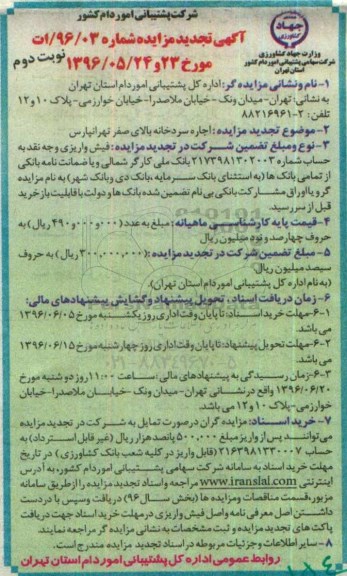 شرکت پشتیبانی امور دام کشور
جهاد
کشاورزی
وزارت جهاد کشاورزی
شرکت سهامی پشتیبانی امور دام کشور
استان تهران
آگهی تجدید مزایده شماره ۹۶/۰۳/ات
مورخ ۲۳ و ۱۳۹۶/۰۵/۲۴
نوبت دوم
۱- نام و نشانی مزایده گر: اداره کل پشتیبانی امور دام استان تهران
به نشانی: تهران- میدان ونک - خیابان ملاصدرا- خیابان خوارزمی- پلاک ۱۰ و ۱۲
تلفن: ۲-۸۸۲۱۶۹۶۱
۲- موضوع تجدید مزایده: اجاره سردخانه بالای صفر تهرانپارس
۳- نوع و مبلغ تضمین شرکت در تجدید مزایده: فیش واریزی وجه نقد به
حساب شماره ۲۱۷۳۹۸۱۳۰۲۰۰۳ بانک ملی کارگر شمالی و یا ضمانت نامه بانکی
از تمامی بانک ها (به استثنای بانک سرمایه، بانک دی و بانک شهر) به نام مزایده
گر و یا اوراق مشارکت بانکی بی نام تضمین شده بانک ها و دولت با قابلیت بازخرید
قبل از سررسید.
۴- قیمت پایه کارشناسی ماهیانه: مبلغ به عدد (۴۹۰,۰۰۰,۰۰۰ ریال) به
حروف چهارصد و نود میلیون ریال
۵- مبلغ تضمین شرکت در تجدید مزایده: (۳۰۰,۰۰۰,۰۰۰ ریال) به حروف
سیصد میلیون ریال
(به نام اداره کل پشتیبانی امور دام استان تهران).
۶- زمان دریافت اسناد، تحویل پیشنهاد و گشایش پیشنهادهای مالی:
۶-۱- مهلت خرید اسناد: تا پایان وقت اداری روز یکشنبه مورخ ۱۳۹۶/۰۶/۰۵
می باشد.
۶-۲- مهلت تحویل پیشنهاد: تا پایان وقت اداری روز چهارشنبه مورخ ۱۳۹۶/۰۶/۱۵
می باشد.
۶-۳- زمان رسیدگی به پیشنهادهای مالی: ساعت ۱۱:۰۰ روز دوشنبه مورخ
۱۳۹۶/۰۶/۲۰ واقع در نشانی تهران- میدان ونک - خیابان ملاصدرا- خیابان
خوارزمی- پلاک ۱۰ و ۱۲ می باشد.
۷- خرید اسناد: مزایده گران در صورت تمایل به شرکت در تجدید مزایده
می توانند پس از واریز مبلغ ۵۰۰,۰۰۰ پانصد هزار ریال (غیر قابل استرداد) به
حساب ۲۱۶۳۹۸۱۳۳۰۰۰۷ (قابل واریز در کلیه شعب بانک کشاورزی) در تاریخ
مهلت خرید اسناد به سامانه شرکت سهامی پشتیبانی امور دام کشور به آدرس
اینترنتی www.iranslal.com مراجعه و اسناد تجدید مزایده را از طریق سامانه
مزبور، قسمت مناقصات و مزایده ها (بخش سال ۹۶) دریافت و سپس با در دست
داشتن اصل معرفی نامه و اصل فیش واریزی در مهلت خرید اسناد جهت دریافت
پاکت های تجدید مزایده و ثبت مشخصات به نشانی مزایده گر مراجعه نمایند.
۸- سایر اطلاعات و جزئیات مربوطه در اسناد تجدید مزایده مندرج است.
روابط عمومی اداره کل پشتیبانی امور دام استان تهران